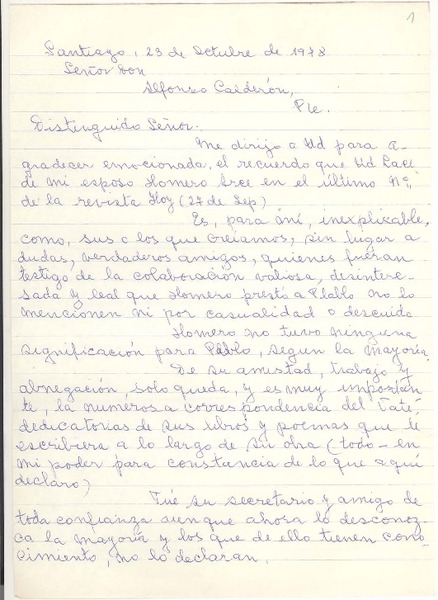 1
Santiago, 23 de Octubre de 1978
Señor Don
Alfonso Calderón,
Pte.
Distinguido Señor.
Me dirijo a Ud para a-
gradecer emocionada, el recuerdo que Ud hace
de mi esposo Homero Arce en el último Nº,
de la revista Hoy (27 de Sep)
Es, para mí, inexplicable,
como, sus o los que creíamos, sin lugar a
dudas, verdaderos amigos, quienes fueran
testigo de la colaboración valiosa, desintere-
sada y leal que Homero prestó a Pablo no lo
mencionen ni por casualidad o descuido
Homero no tuvo ninguna
significación para Pablo, según la mayoría.
De su amistad, trabajo y
abnegación, solo queda, y es muy importan-
te, la numerosa correspondencia del Vate,
dedicatorias de sus libros y poemas que le
escribiera a lo largo de su obra (todo - en
mi poder para constancia de lo que aquí
declaro)
Fué su secretario y amigo de
toda confianza aunque ahora lo desconoz-
ca la mayoría y los que de ello tienen cono-
cimiento, no lo declaran.